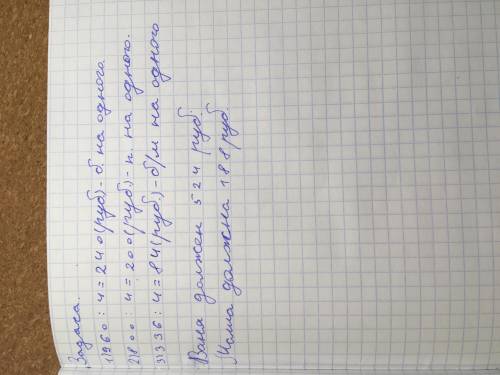 Задача.
1) 960 : 4 = 240 (руб) - б. на одного.
2) 800 : 4 = 200 (руб) - п. на одного.
3) 336 : 4 = 84 (руб.) - б/м на одного
Ваня должен 524 руб.
Маша должна 188 руб.